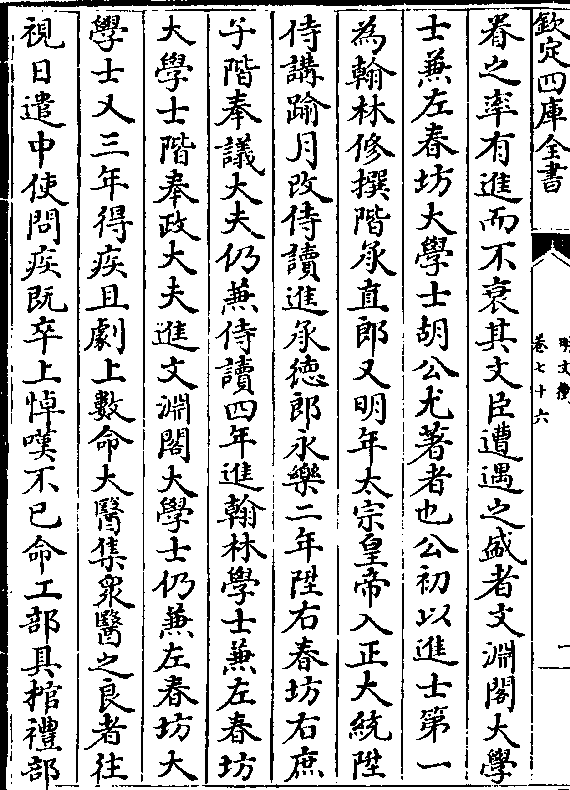 欽定四庫全書
明文衡
卷七十六
一
眷之率有進而不衰其文臣遭遇之盛者文淵閣大學
士兼左春坊大學士胡公尤著者也公初以進士第一
為翰林修撰階承直郎又明年太宗皇帝入正大統陞
侍講踰月改侍讀進承徳郎永樂二年陞右春坊右庶
子階奉議大夫仍兼侍讀四年進翰林學士兼左春坊
大學士階奉政大夫進文淵閣大學士仍兼左春坊大
學士又三年得疾且劇上數命大醫集衆醫之良者往
視日遣中使問疾既卒上悼嘆不已命工部具棺禮部